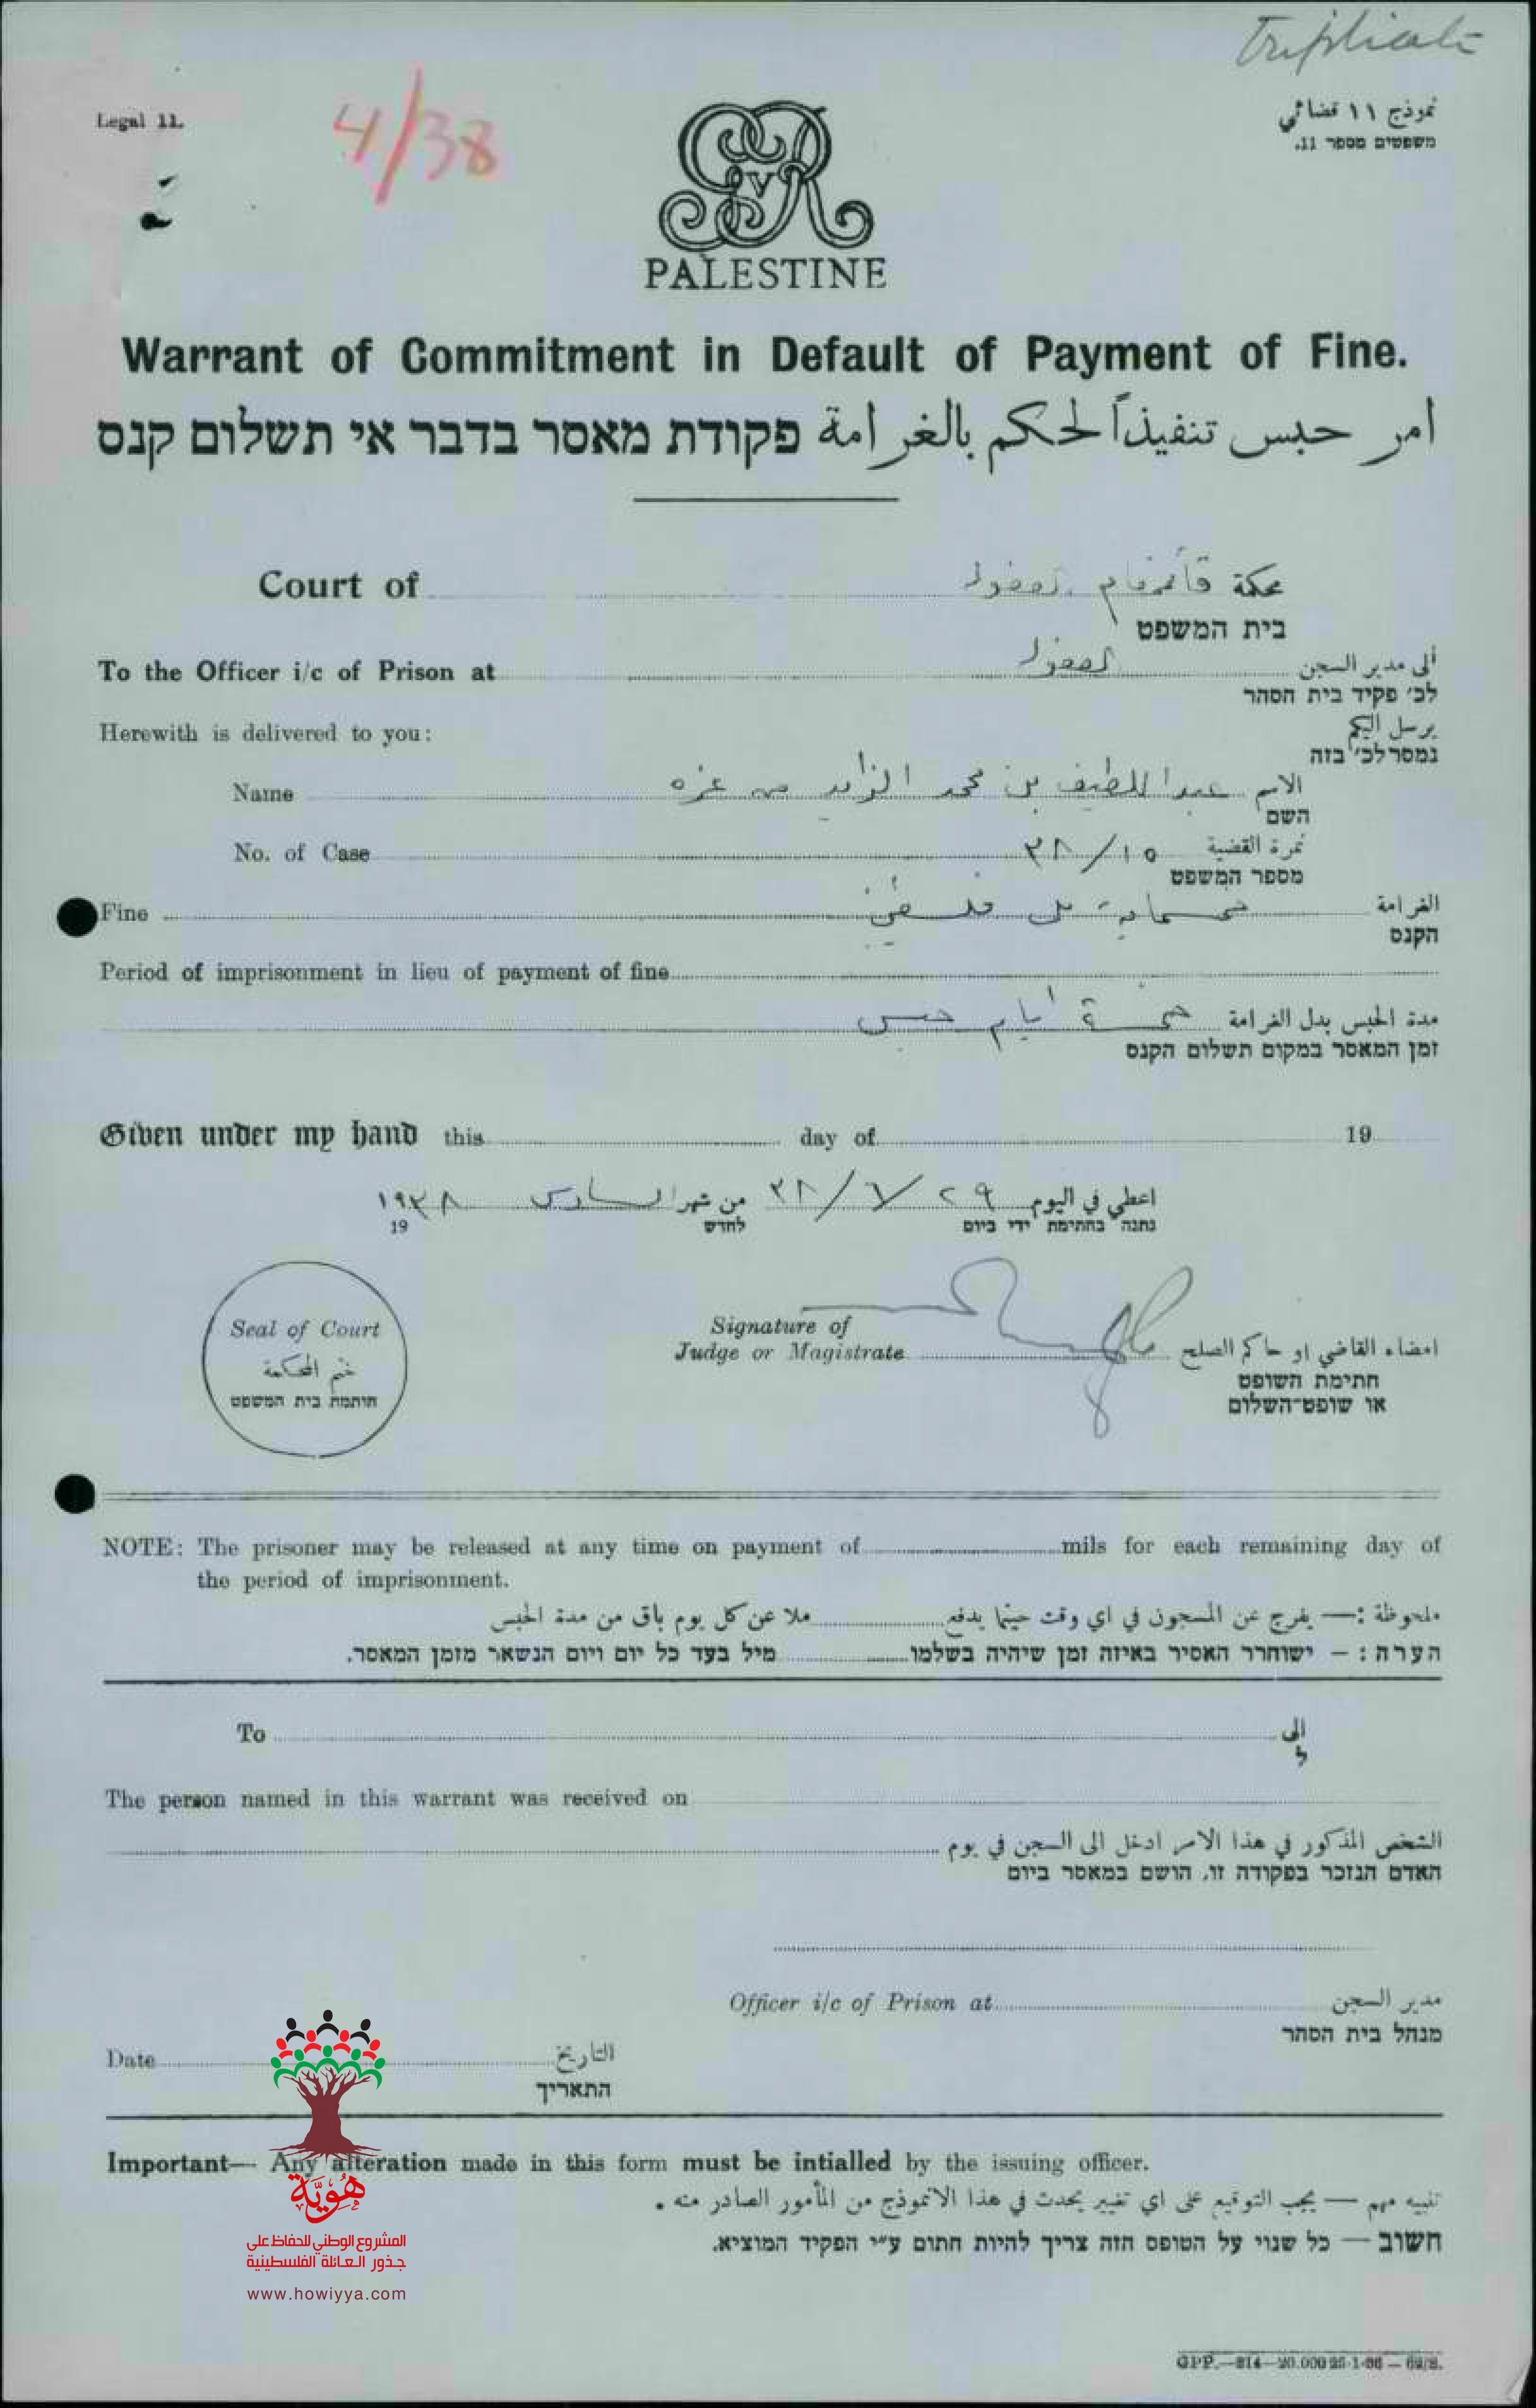 Triplicate
Legal 11.
4/38
نموذج ١١ قضائي
משפטים מספר 11.
GRV
PALESTINE
Warrant of Commitment in Default of Payment of Fine.
امر حبس تنفيذاً لحكم بالغرامة פקודת מאסר בדבר אי תשלום קנס
Court of
محكمة قائمقام
בית המשפט
To the Officer i/c of Prison at
ألى مدير السجن
לכ׳ פקיד בית הסהר
Herewith is delivered to you:
يرسل اليكم
נמסר לכ׳ בזה
Name
الاسم عبد اللطيف بن محمد الزايد من غزه
השם
No. of Case
نمرة القضية ١٥/٣٨
מספר המשפט
Fine
الغرامة خمسماية مل فلسطيني
הקנס
Period of imprisonment in lieu of payment of fine
مدة الحبس بدل الغرامة خمسة أيام حبس
זמן המאסר במקום תשלום הקנס
Given under my hand this day of 19
اعطي في اليوم ٢٩/٦/٣٨ من شهر السادس ١٩٣٨
נתנה בחתימת ידי ביום לחדש 19
Seal of Court
ختم المحكمة
חותמת בית המשפט
Signature of
Judge or Magistrate
امضاء القاضي او حاكم الصلح
חתימת השופט
או שופט־השלום
NOTE: The prisoner may be released at any time on payment of mils for each remaining day of
the period of imprisonment.
ملحوظة :— يفرج عن المسجون في اي وقت حينما يدفع ملا عن كل يوم باق من مدة الحبس
הערה : – ישוחרר האסיר באיזה זמן שיהיה בשלמו מיל בעד כל יום ויום הנשאר מזמן המאסר.
To
الى
ל
The person named in this warrant was received on
الشخص المذكور في هذا الامر ادخل الى السجن في يوم
האדם הנזכר בפקודה זו, הושם במאסר ביום
Officer i/c of Prison at
مدير السجن
מנהל בית הסהר
Date
التاريخ
התאריך
Important— Any alteration made in this form must be intialled by the issuing officer.
تنبيه مهم — يجب التوقيع على اي تغيير يحدث في هذا الانموذج من المأمور الصادر منه .
חשוב — כל שנוי על הטופס הזה צריך להיות חתום ע״י הפקיד המוציא.
هُوِيَّة
المشروع الوطني للحفاظ على
جذور العائلة الفلسطينية
www.howiyya.com
GPP.—814—20.000 25-1-36 — 62/S.